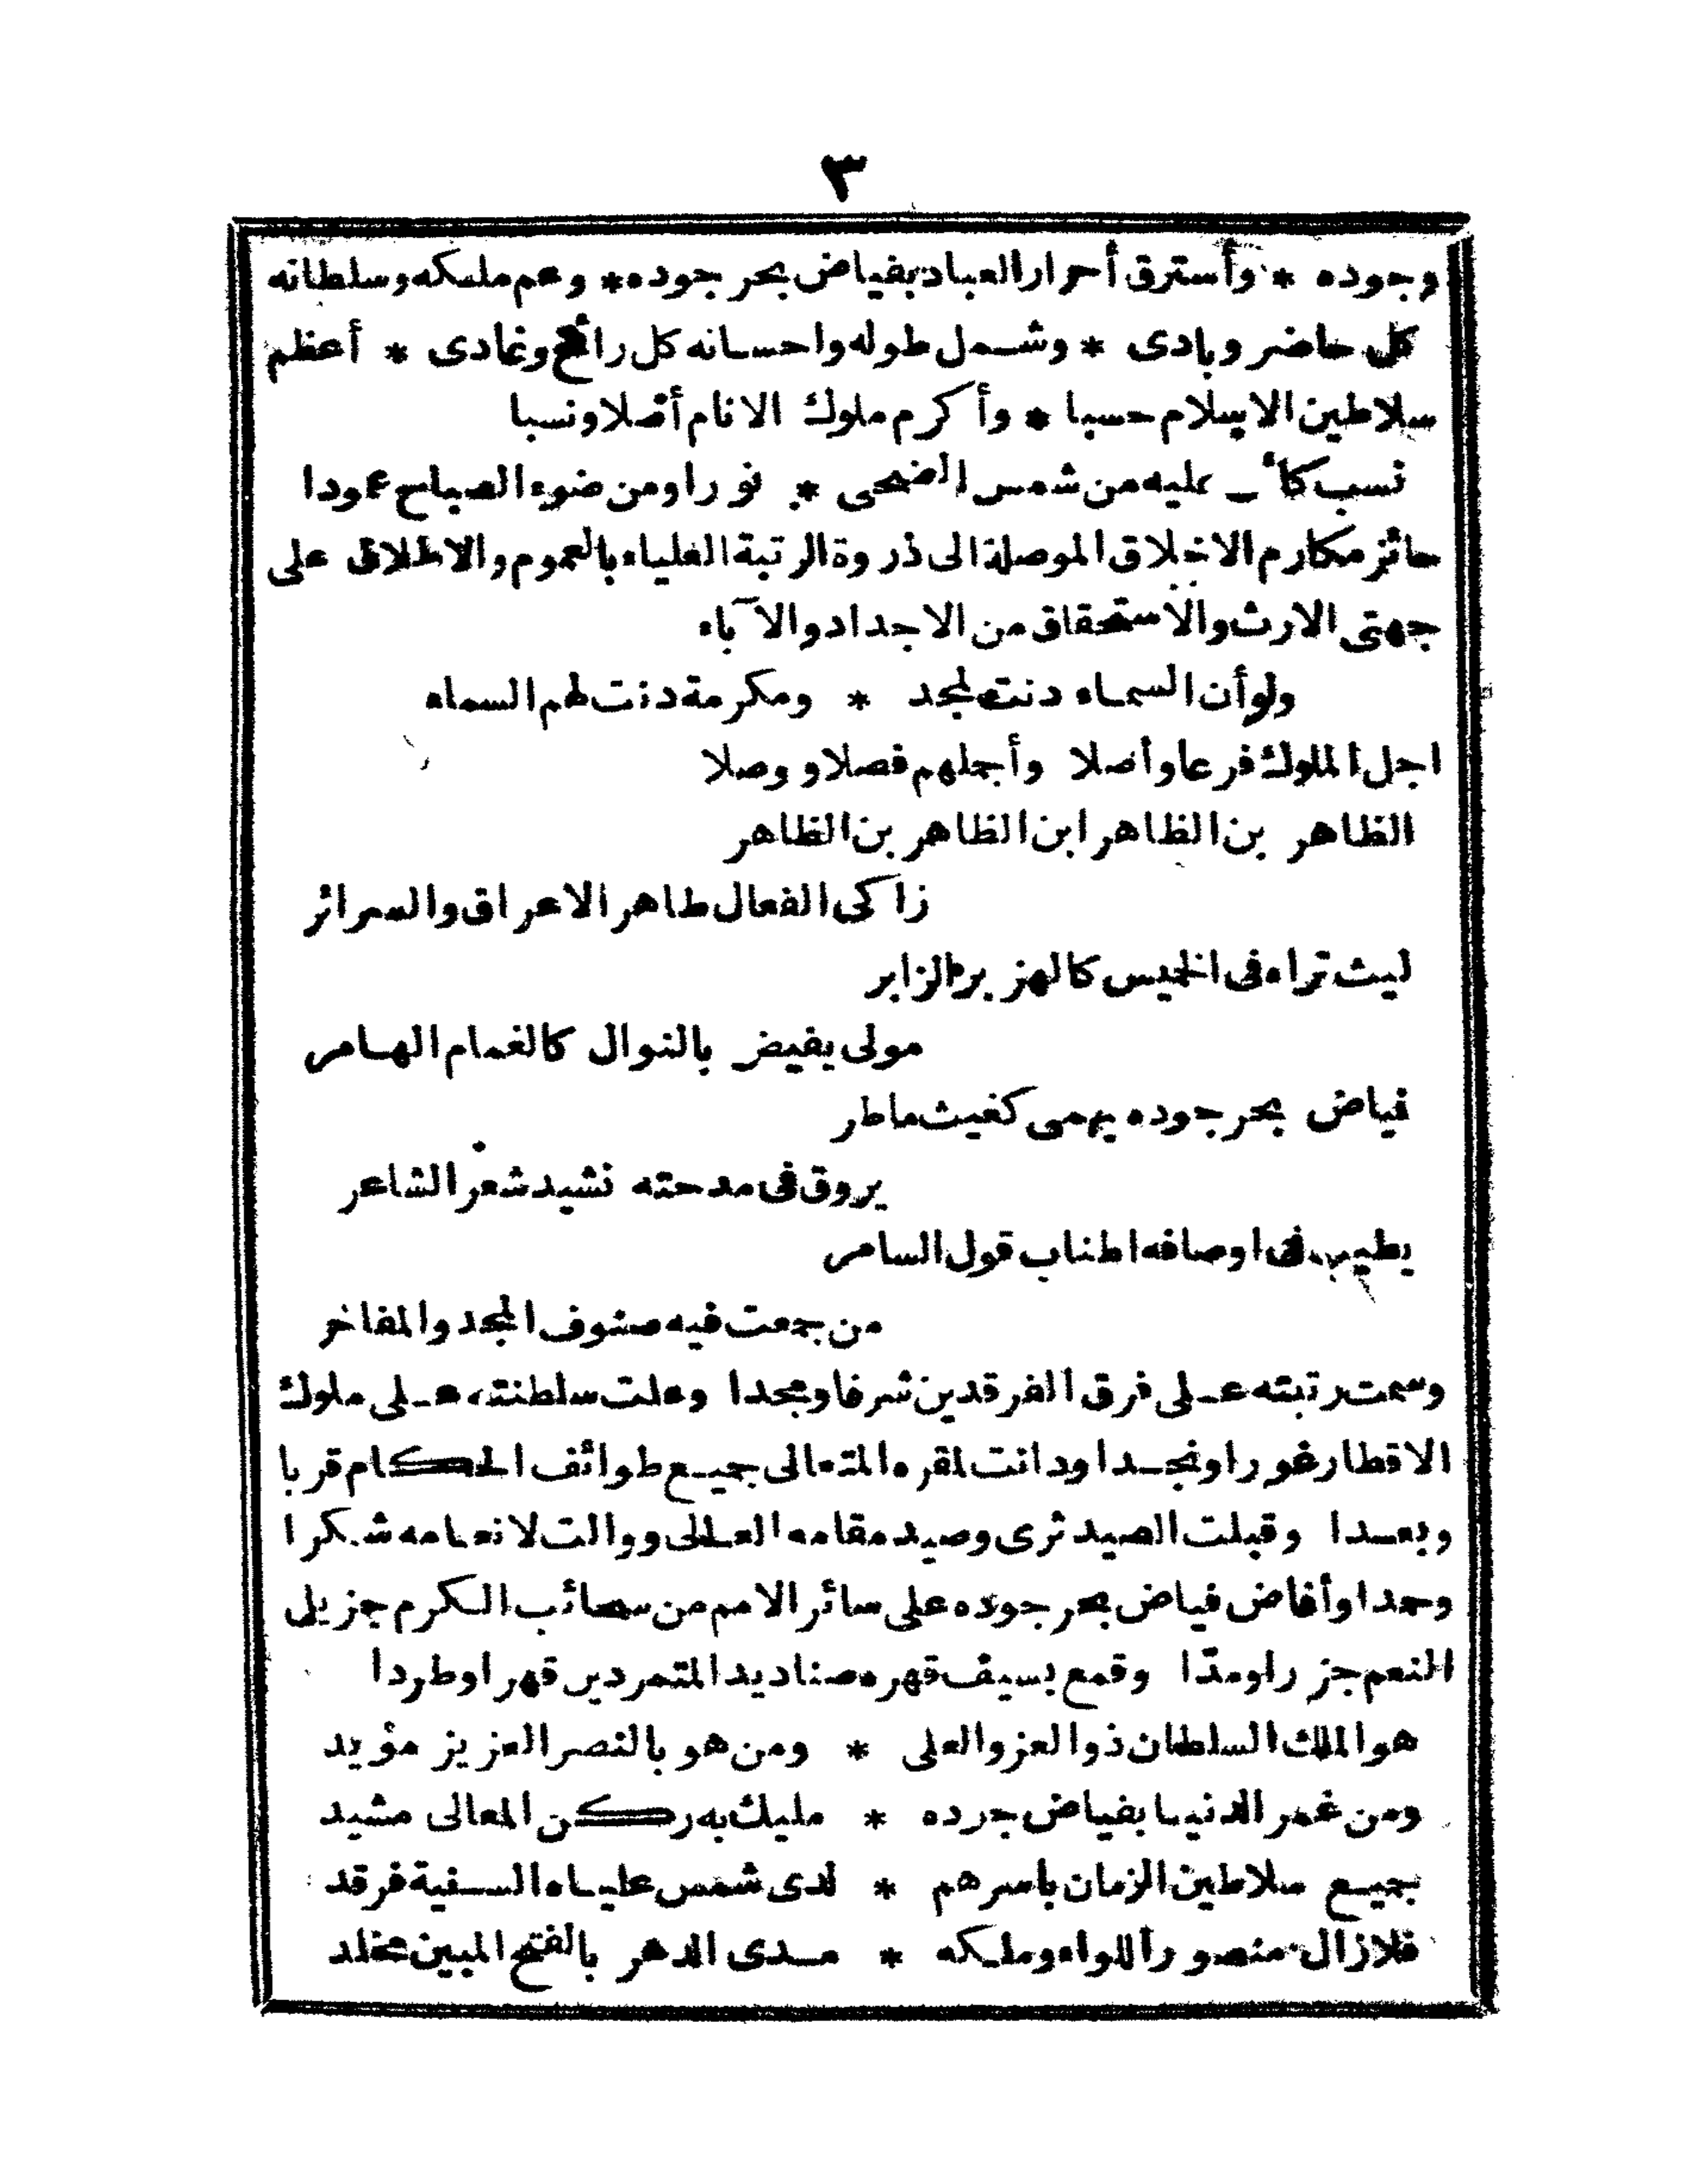 ٣
وجوده * وأسترق أحرار العباد بفياض بحر جوده * وعم ملكه وسلطانه
كل حاضر وبادى * وشمل طوله واحسانه كل رائح وغادى * أعظم
سلاطين الاسلام حسبا * وأكرم ملوك الانام أصلا ونسبا
نسب كأن عليه من شمس الضحى * نورا ومن ضوء الصباح عمودا
حائز مكارم الاخلاق الموصلة الى ذروة الرتبة العلياء بالعموم والاطلاق على
جهتى الارث والاستحقاق من الاجداد والآباء
ولو أن السماء دنت لمجد * ومكرمة دنت لهم السماء
اجل الملوك فرعا وأصلا وأجملهم فصلا ووصلا
الظاهر بن الظاهر ابن الظاهر بن الظاهر
زاكى الفعال طاهر الاعراق والسرائر
ليث تراه فى الخميس كالهزبر الزابر
مولى يفيض بالنوال كالغمام الهامر
فياض بحر جوده يهمى كغيث ماطر
يروق فى مدحته نشيد شعر الشاعر
يطيب فى اوصافه اطناب قول السامر
من جمعت فيه صنوف المجد والمفاخر
وسمت رتبته على فرق الفرقدين شرفا ومجدا وعلت سلطنته على ملوك
الاقطار غورا ونجدا ودانت لمقره المتعالى جميع طوائف الحكام قربا
وبعدا وقبلت الصيد ثرى وصيد مقامه العالى ووالت لانعامه شكرا
وحمدا وأفاض فياض بحر جوده على سائر الامم من سحائب الكرم جزيل
النعم جزرا ومدّا وقمع بسيف قهره صناديد المتمردين قهرا وطردا
هو الملك السلطان ذوا العز والعلى * ومن هو بالنصر العزيز مؤيد
ومن غمر الدنيا بفياض جوده * مليك به ركن المعالى مشيد
جميع سلاطين الزمان باسرهم * لدى شمس علياه السنية فرقد
فلازال منصور اللواء وملكه * مدى الدهر بالفتح المبين مخلد